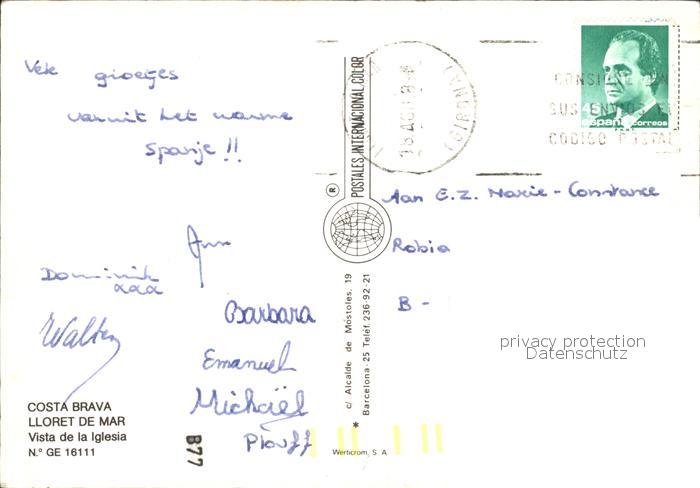 Vele groetjes
vanuit het warme
Spanje !!
Ann
Dominik
xxx
Walter
Barbara
Emanuel
Michaël
Plouff
COSTA BRAVA
LLORET DE MAR
Vista de la Iglesia
N.° GE 16111
B77
POSTALES INTERNACIONAL COLOR
®
c/ Alcalde de Móstoles, 19
Barcelona-25 Teléf. 236-92-21
*
Werticrom, S. A.
(GIRONA)
CONSIGNE EN
SUS ENVIOS EL
CODIGO POSTAL
45
españa correos
Aan E.Z. Marie-Constance
Robia
B -
privacy protection
Datenschutz